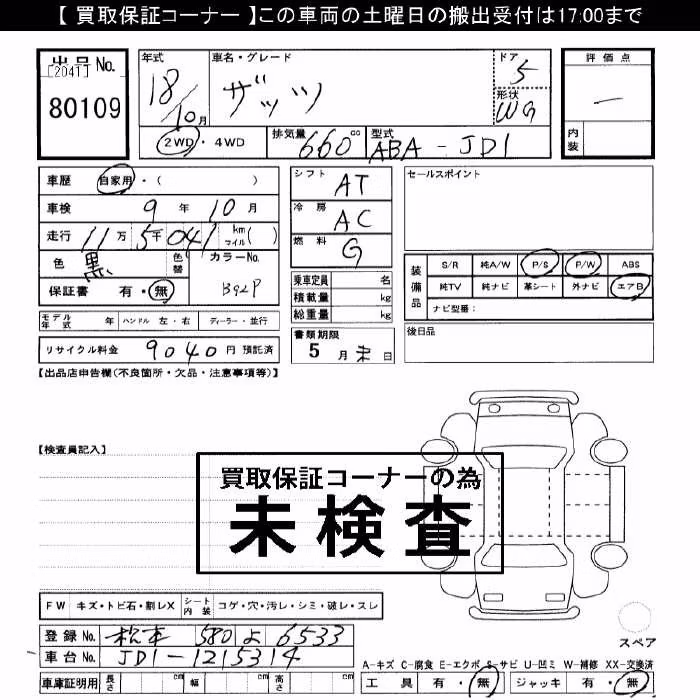 【 買取保証コーナー 】この車両の土曜日の搬出受付は17:00まで
出品 No.
[2041]
80109
年式
18/10月
車名・グレード
ザッツ
ドア
5
形状
WG
2WD・4WD
排気量
660cc
型式
ABA - JD1
評価点
内装
車歴 自家用・( )
車検 9 年 10 月
走行 11万 5千 041 km マイル( )
色 黒 色替
カラーNo.
B92P
保証書 有・無
モデル年式 年 ハンドル 左・右 ディーラー・並行
リサイクル料金 9040 円 預託済
シフト AT
冷房 AC
燃料 G
乗車定員 名
積載量 kg
総重量 kg
書類期限
5 月 末 日
セールスポイント
装備品
S/R 純A/W P/S P/W ABS
純TV 純ナビ 革シート 外ナビ エアB
ナビ型番:
後日品
【出品店申告欄(不良箇所・欠品・注意事項等)】
【検査員記入】
買取保証コーナーの為
未検査
FW キズ・トビ石・割レX シート内装 コゲ・穴・汚レ・シミ・破レ・スレ
登録 No. 松本 580 よ 6533
車台 No. JD1-1215314
車庫証明用 長さ cm 幅 cm 高さ cm
スペア
A-キズ C-腐食 E-エクボ S-サビ U-凹ミ W-補修 XX-交換済
工具 有・無 ジャッキ 有・無